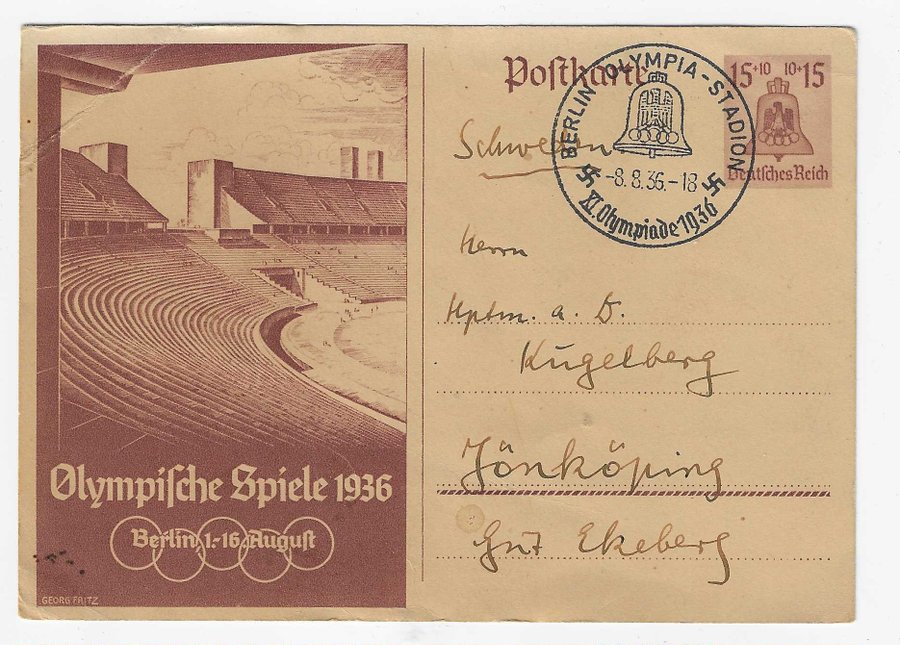 Olympische Spiele 1936
Berlin 1.-16. August
GEORG FRITZ
Postkarte
15+10 10+15
Deutsches Reich
BERLIN OLYMPIA-STADION
-8.8.36.-18
XI. Olympiade 1936
Schweden
Herrn
Hptm. a. D.
Kugelberg
Jönköping
Gut Ekeberg